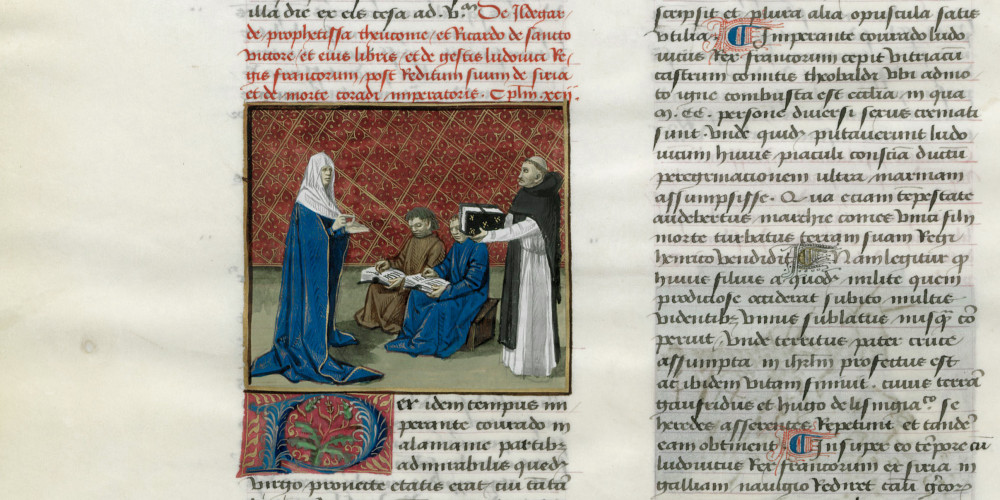 illa die ex eis cesa ad. v. De Ildegar
de prophetissa theucome, et Ricardo de sancto
victore, et eius libris, et de gestis ludovici Re
gis francorum, post Reditum suum de siria
et de morte coradi imperatoris. C plm. xcij.
Per idem tempus im
perante conrado in
alamanie partibz
admirabilis quedã
virgo provecte etatis erat cui tantũ
scripsit et plura alia opuscula satis
vtilia. Imperante conrado ludo
uicus Rex francorum cepit vitriacũ
castrum comitis theobaldi vbi admo
to igne combusta est ecclĩa in qua
M. CC. persone diversi sexus cremati
sunt. vnde quidã putaverunt ludo
uicum huius piaculi conscĩa ductũ
peregrinationem ultra marinam
assumpsisse. Qua etiam tempestate
audebertus marchie comes vnici filii
morte turbatus terram suam Regi
henrico vendidit. Nam legitur q
huius filius a quodã milite quem
prodiciose occiderat subito multis
videntibz vnius sublatus nusq̃ cõ
peruit. vnde territus pater cruce
assumpta in ihrlm profectus est
ac ibidem vitam finiuit. cuius terrã
gaufridus et hugo de lisingiaco se
heredes asserentes Repetunt et tandẽ
eam obtinent. Insuper eo tẽpore cũ
ludovicus Rex francorum ex siria in
galliam navigio Rediret